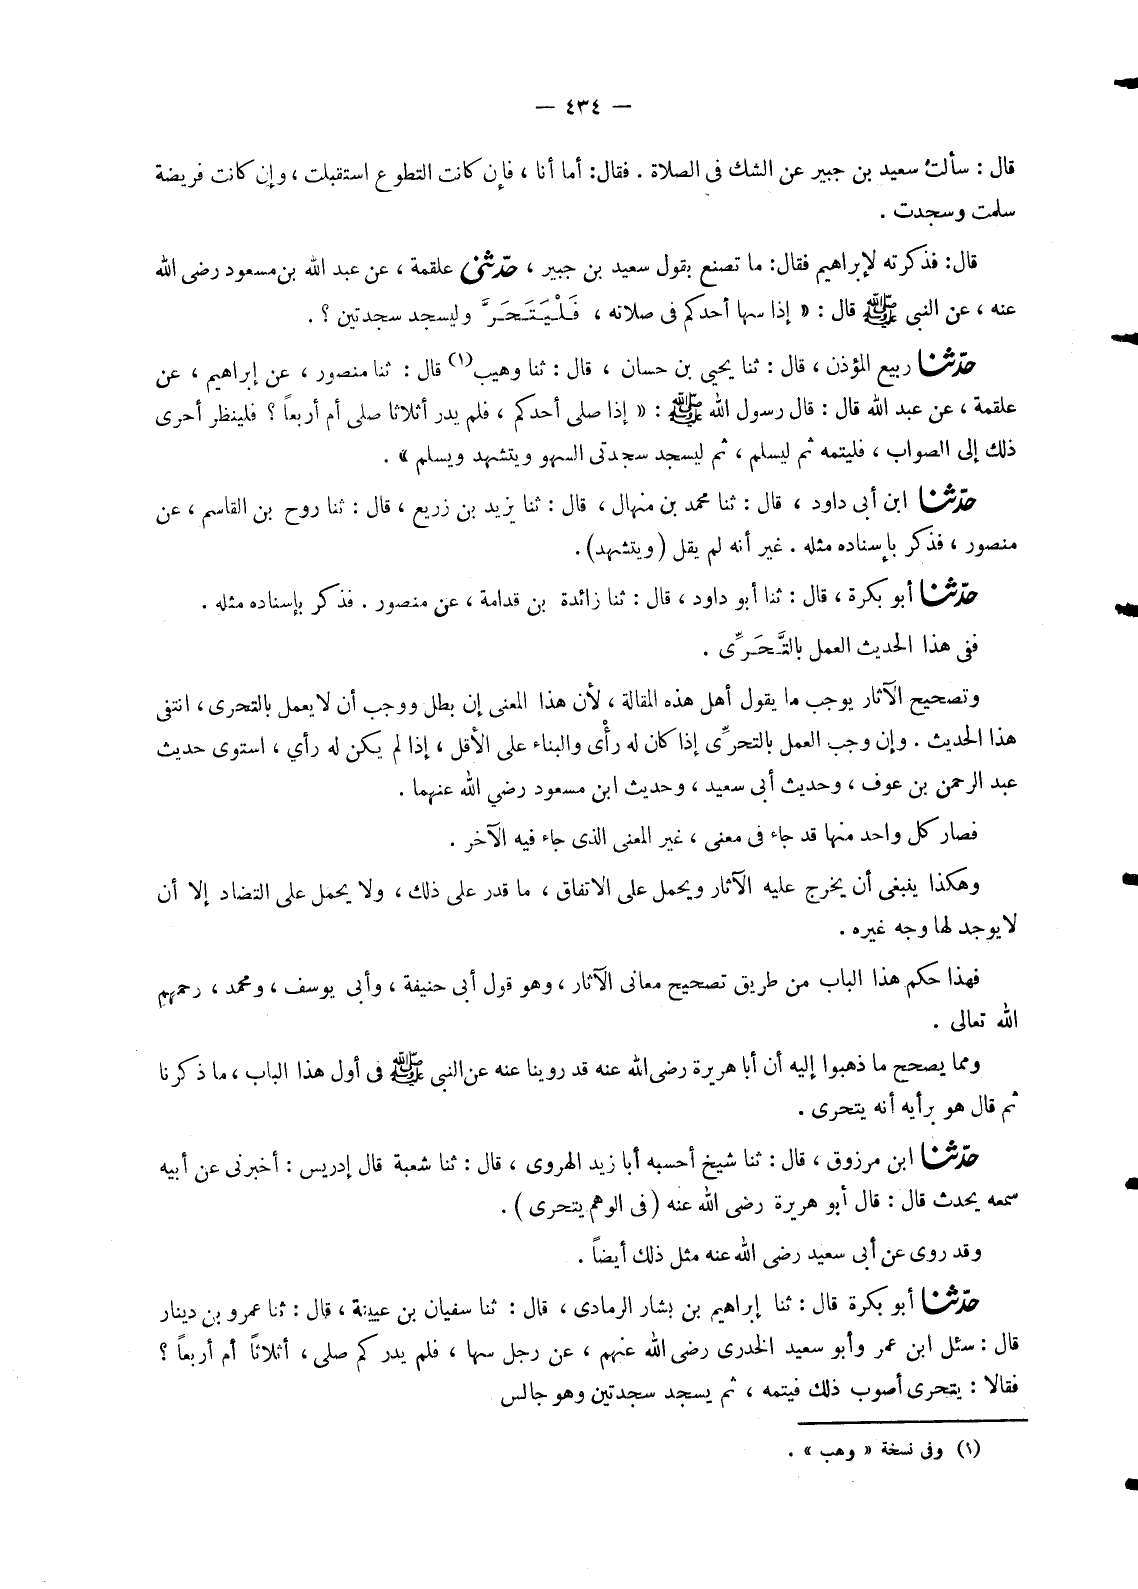 — ٤٣٤ —
قال : سألتُ سعيد بن جبير عن الشك فى الصلاة . فقال: أما أنا ، فإن كانت التطوع استقبلت ، وإن كانت فريضة
سلمت وسجدت .
قال: فذكرته لإبراهيم فقال: ما تصنع بقول سعيد بن جبير ، حدّثنى علقمة ، عن عبد الله بن مسعود رضى الله
عنه ، عن النبى ﷺ قال : « إذا سها أحدكم فى صلاته ، فَلْيَتَحَرَّ وليسجد سجدتين ؟ .
حدّثنا ربيع المؤذن ، قال : ثنا يحيى بن حسان ، قال : ثنا وهيب(١) قال : ثنا منصور ، عن إبراهيم ، عن
علقمة ، عن عبد الله قال : قال رسول الله ﷺ : « إذا صلى أحدكم ، فلم يدر أثلاثا صلى أم أربعاً ؟ فلينظر أحرى
ذلك إلى الصواب ، فليتمه ثم ليسلم ، ثم ليسجد سجدتى السهو ويتشهد ويسلم » .
حدّثنا ابن أبى داود ، قال : ثنا محمد بن منهال ، قال : ثنا يزيد بن زريع ، قال : ثنا روح بن القاسم ، عن
منصور ، فذكر بإسناده مثله . غير أنه لم يقل (ويتشهد).
حدّثنا أبو بكرة ، قال : ثنا أبو داود ، قال : ثنا زائدة بن قدامة ، عن منصور . فذكر بإسناده مثله .
ففى هذا الحديث العمل بالتَّحَرِّى .
وتصحيح الآثار يوجب ما يقول أهل هذه المقالة ، لأن هذا المعنى إن بطل ووجب أن لا يعمل بالتحرى ، انتفى
هذا الحديث . وإن وجب العمل بالتحرِّى إذا كان له رأْى والبناء على الأقل ، إذا لم يكن له رأي ، استوى حديث
عبد الرحمن بن عوف ، وحديث أبى سعيد ، وحديث ابن مسعود رضي الله عنهما .
فصار كل واحد منها قد جاء فى معنى ، غير المعنى الذى جاء فيه الآخر .
وهكذا ينبغى أن يخرج عليه الآثار ويحمل على الاتفاق ، ما قدر على ذلك ، ولا يحمل على التضاد إلا أن
لا يوجد لها وجه غيره .
فهذا حكم هذا الباب من طريق تصحيح معانى الآثار ، وهو قول أبى حنيفة ، وأبى يوسف ، ومحمد ، رحمهم
الله تعالى .
ومما يصحح ما ذهبوا إليه أن أبا هريرة رضى الله عنه قد روينا عنه عن النبى ﷺ فى أول هذا الباب ، ما ذكرنا
ثم قال هو برأيه أنه يتحرى .
حدّثنا ابن مرزوق ، قال : ثنا شيخ أحسبه أبا زيد الهروى ، قال : ثنا شعبة قال إدريس : أخبرنى عن أبيه
سمعه يحدث قال : قال أبو هريرة رضى الله عنه (فى الوهم يتحرى) .
وقد روى عن أبى سعيد رضى الله عنه مثل ذلك أيضاً .
حدّثنا أبو بكرة قال : ثنا إبراهيم بن بشار الرمادى ، قال : ثنا سفيان بن عيينة ، قال : ثنا عمرو بن دينار
قال : سئل ابن عمر وأبو سعيد الخدرى رضى الله عنهم ، عن رجل سها ، فلم يدر كم صلى ، أثلاثاً أم أربعاً ؟
فقالا : يتحرى أصوب ذلك فيتمه ، ثم يسجد سجدتين وهو جالس
(١) وفى نسخة « وهب » .